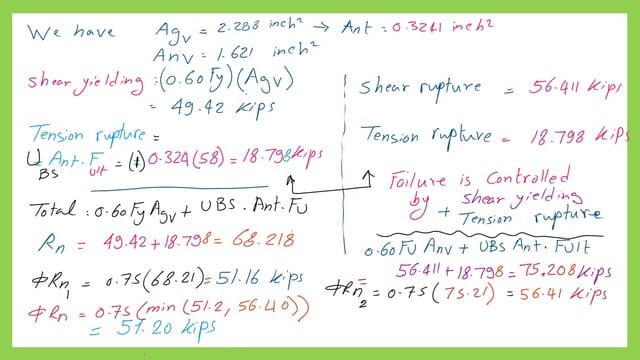 We have Agv = 2.288 inch² → Ant = 0.3241 inch²
Anv = 1.621 inch²
Shear yielding : (0.60Fy)(Agv)
= 49.42 kips
Tension rupture =
UBS Ant. Fult = (1) 0.324(58) = 18.798kips
Total: 0.60FyAgv + UBS. Ant. Fu
Rn = 49.42 + 18.798 = 68.218
ΦRn1 = 0.75(68.21) = 51.16 kips
ΦRn = 0.75(min(51.2, 56.40))
= 51.20 kips
Shear rupture = 56.411 kips
Tension rupture = 18.798 kips
Failure is Controlled
by shear yielding
+ Tension rupture
0.60Fu Anv + UBS Ant. Fult
= 56.411 + 18.798 = 75.208 kips
ΦRn2 = 0.75(75.21) = 56.41 kips